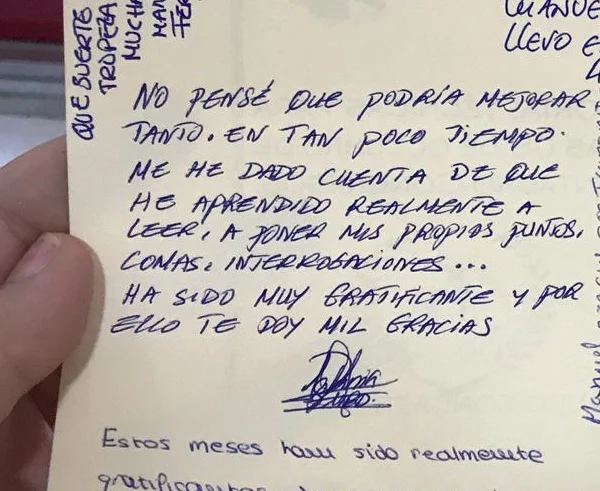 QUE SUERTE
TROPEZA
MUCHA
MAN
FER
MANUE
LLEVO E
NO PENSÉ QUE PODRÍA MEJORAR
TANTO. EN TAN POCO TIEMPO.
ME HE DADO CUENTA DE QUE
HE APRENDIDO REALMENTE A
LEER, A PONER MIS PROPIOS PUNTOS,
COMAS, INTERROGACIONES...
HA SIDO MUY GRATIFICANTE Y POR
ELLO TE DOY MIL GRACIAS
Estos meses han sido realmente
Manuel